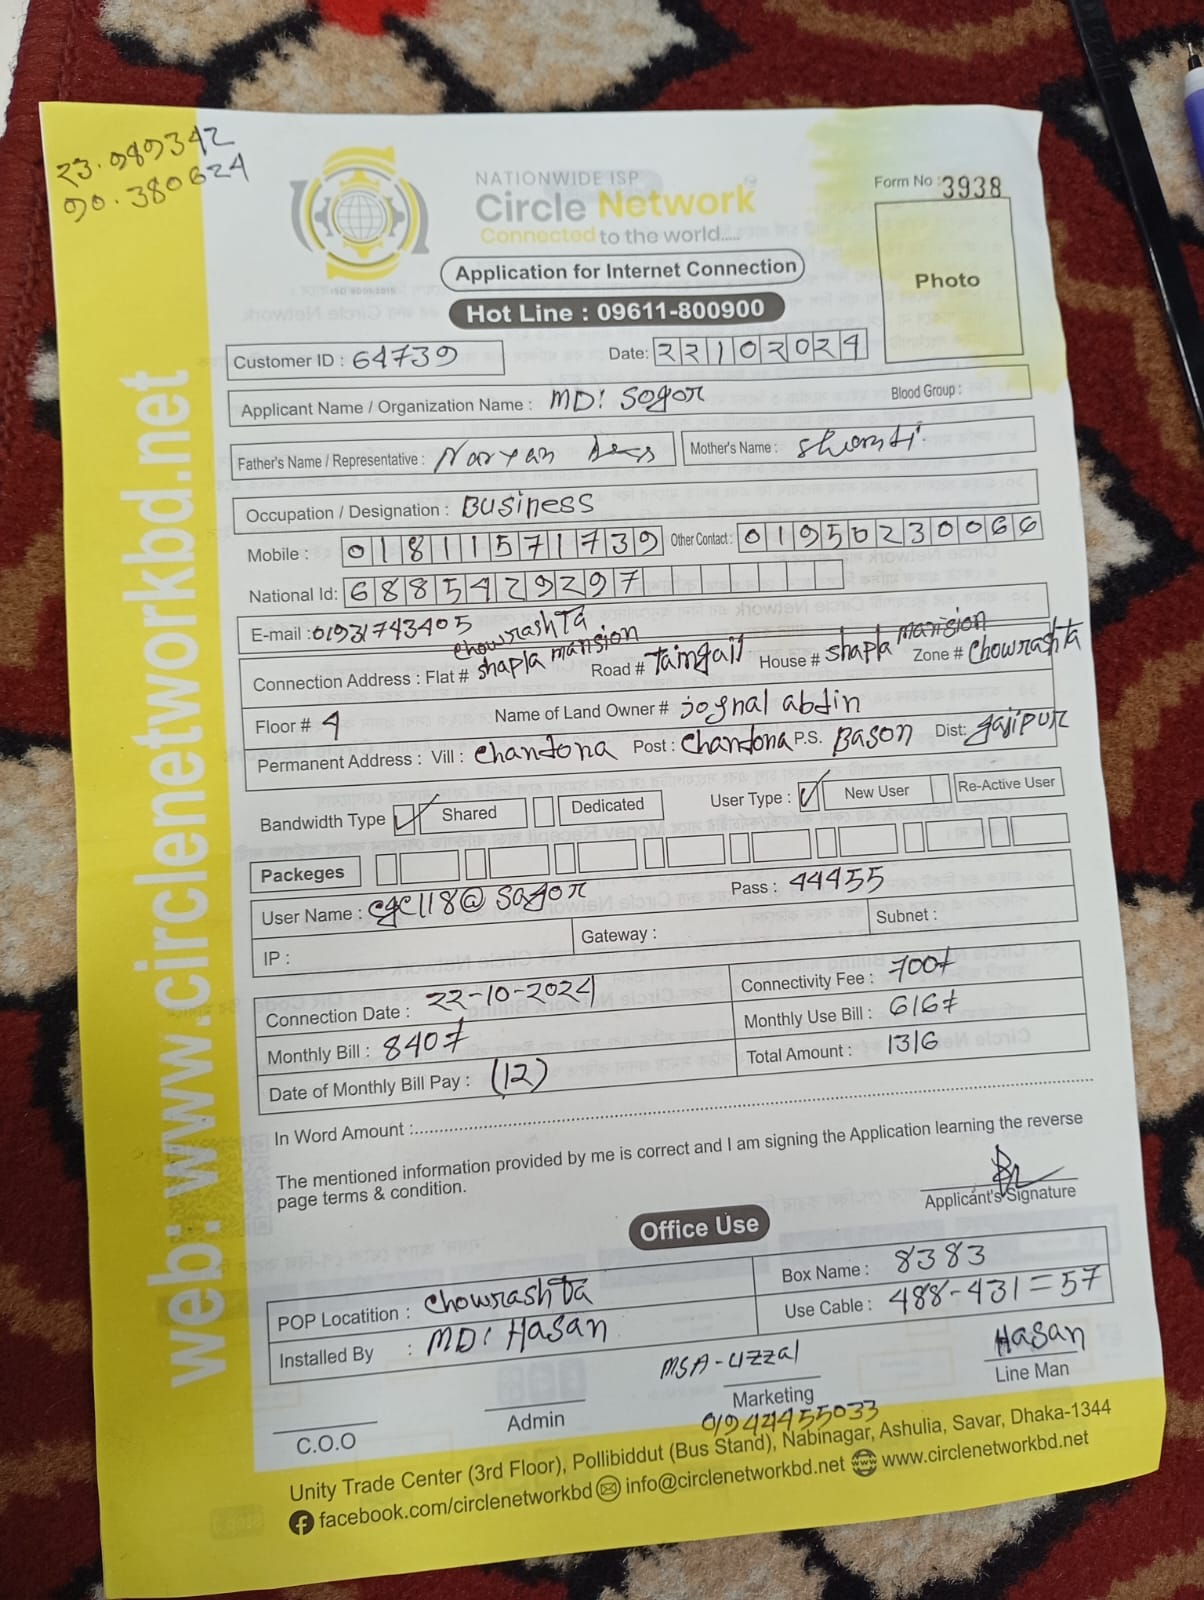 23.989342
90.380624
NATIONWIDE ISP
Circle Network
Connected to the world.....
ISO 9001:2015
Form No : 3938
Photo
Application for Internet Connection
Hot Line : 09611-800900
Customer ID : 64739
Date: 22102024
Applicant Name / Organization Name : MD: Sogor
Blood Group :
Father's Name / Representative : Naryan
Mother's Name : Shanti
Occupation / Designation : Business
Mobile : 01811571739 Other Contact : 01950230066
National Id: 6885429297
E-mail : 01931743405
Connection Address : Flat # chowrashta shapla mansion Road # Taingail House # shapla mansion Zone # chowrashta
Floor # 4 Name of Land Owner # joynal abdin
Permanent Address : Vill : Chandona Post : Chandona P.S. Bason Dist: gajipur
Bandwidth Type ✓ Shared Dedicated User Type : ✓ New User Re-Active User
Packeges
User Name : cgc118@sagor Pass : 44455
IP : Gateway : Subnet :
Connection Date : 22-10-2024 Connectivity Fee : 700/
Monthly Bill : 840/ Monthly Use Bill : 616/
Date of Monthly Bill Pay : (12) Total Amount : 1316
In Word Amount :
The mentioned information provided by me is correct and I am signing the Application learning the reverse
page terms & condition.
Applicant's Signature
Office Use
POP Locatition : Chowrashta Box Name : 8383
Installed By : MD: Hasan Use Cable : 488-431=57
MSA-Uzzal
Hasan
C.O.O Admin Marketing Line Man
01944455033
Unity Trade Center (3rd Floor), Pollibiddut (Bus Stand), Nabinagar, Ashulia, Savar, Dhaka-1344
facebook.com/circlenetworkbd info@circlenetworkbd.net www.circlenetworkbd.net
web: www.circlenetworkbd.net